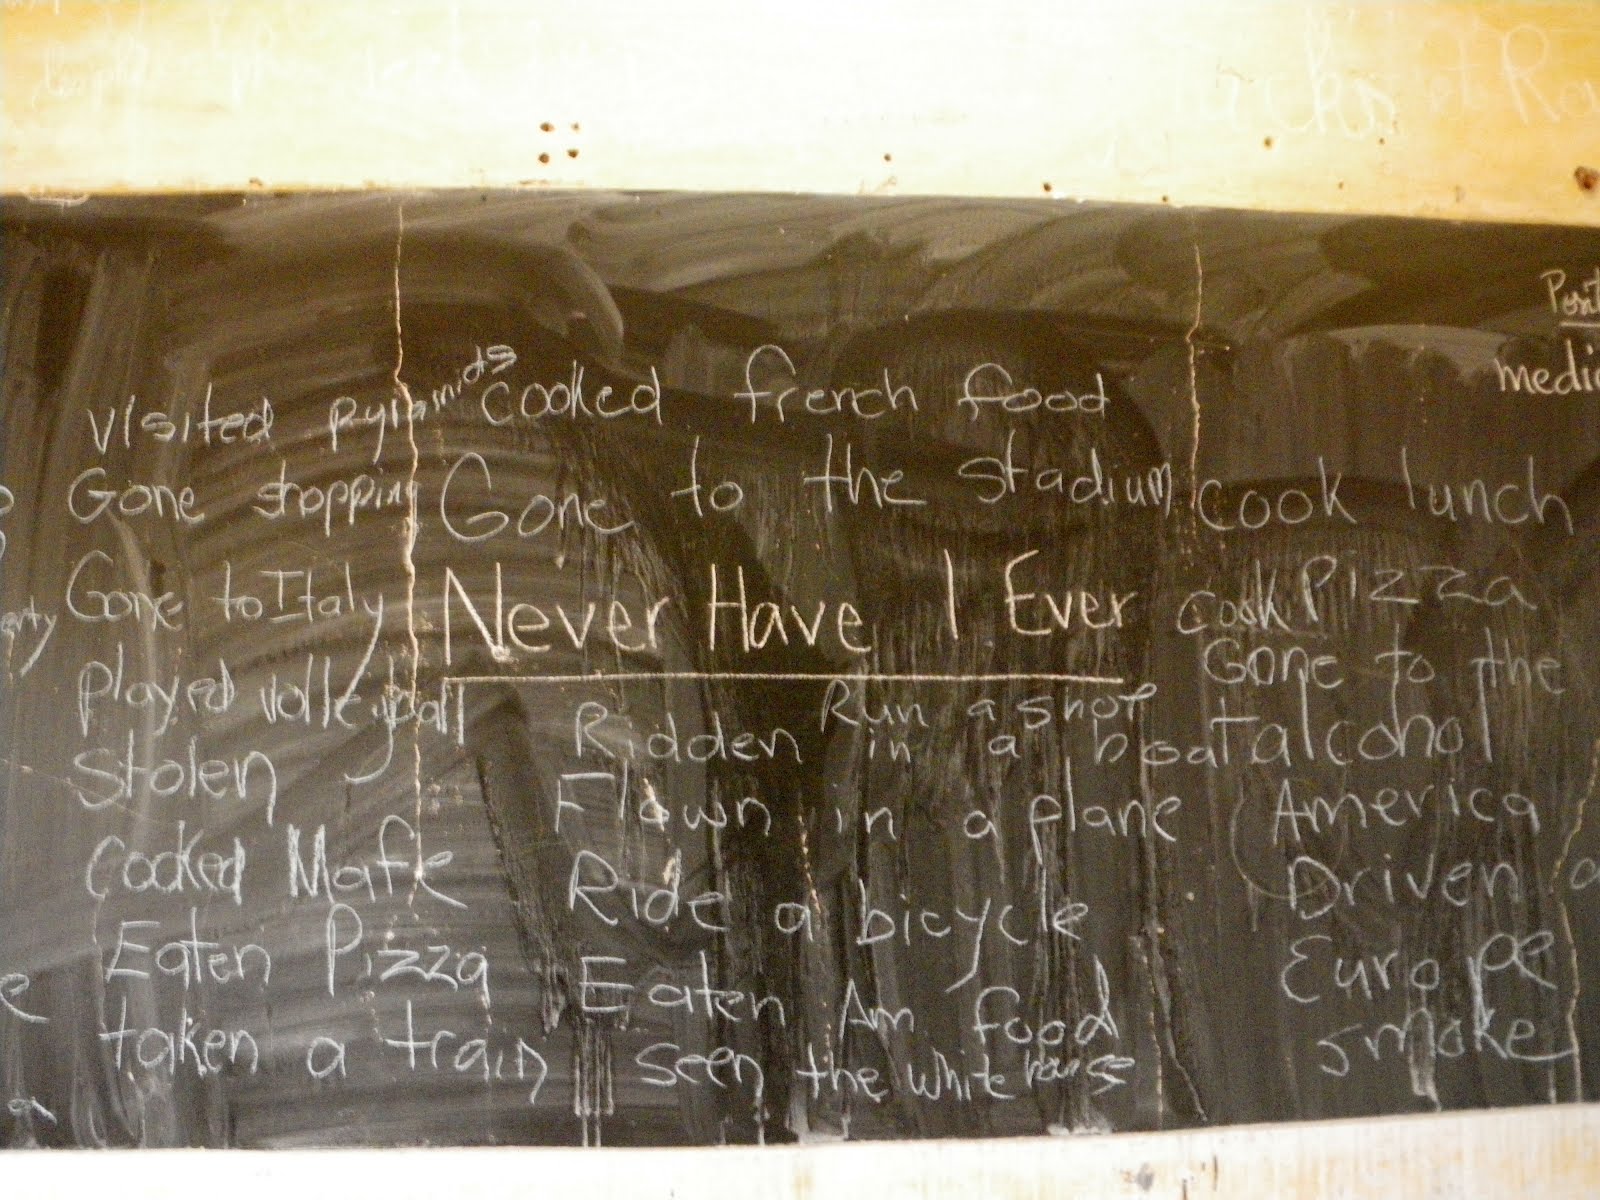 visited pyramids
Gone shopping
Gone to Italy
played volleyball
Stolen
Cooked Mafe
Eaten Pizza
taken a train
cooked french food
Gone to the stadium
Never Have I Ever
Run a shop
Ridden in a boat
Flown in a plane
Ride a bicycle
Eaten Am food
seen the white house
cook lunch
cook Pizza
Gone to the
alcohol
America
Driven a
Europe
smoke
medic